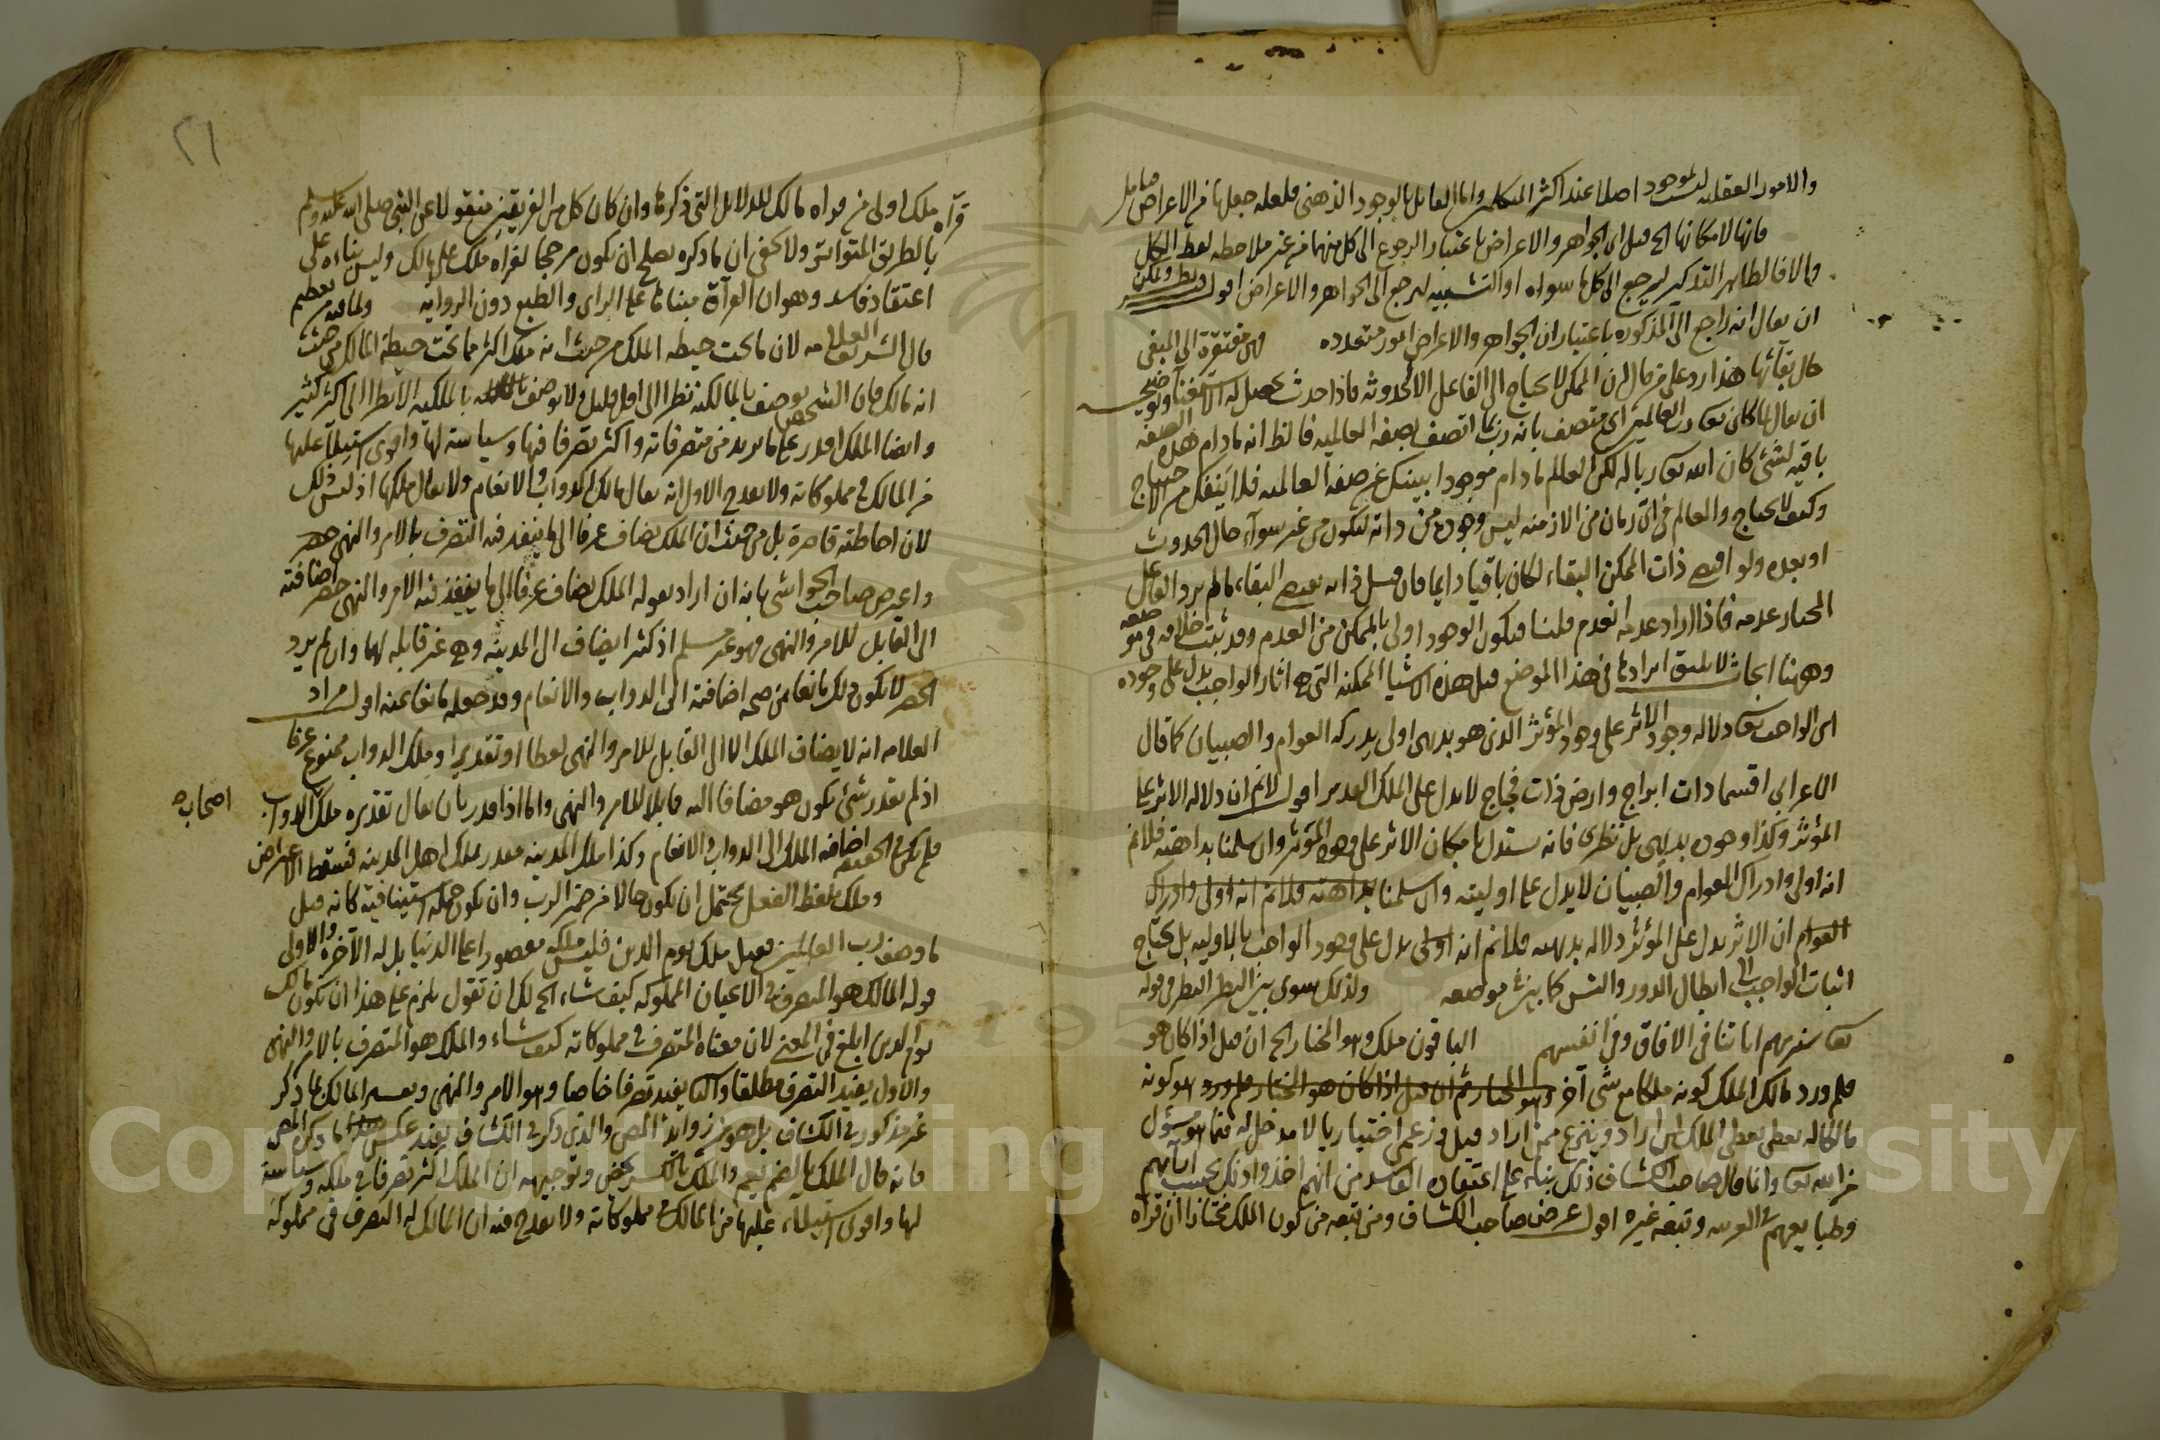 والامور العقلية ليست بموجودة اصلا عند اكثر المتكلمين واما القائل بالوجود الذهني فلعله جعلها من الاعراض
فانها لامكانها الخ قيل اي الجواهر والاعراض باعتبار الرجوع الى كل منهما من غير ملاحظة لفظ الكل
والا فالظاهر التذكير ليرجع الى كل ما سواه او التثنية ليرجع الى الجواهر والاعراض اقول
ان يقال انه راجع الى المذكورة باعتبار ان الجواهر والاعراض امور متعددة فهي مفتقرة الى المبقي
حال بقائها هذا رد على من قال ان الممكن لا يحتاج الى الفاعل الا لحدوثه فاذا حدث حصل له الاستغناء
ان يقال لما كان تعالى رب العالمين اي متصف بانه ربها اتصف بصفة العالمية فالظ انه ما دام هذه الصفة
باقية لشيء كان الله تعالى ربا له لكن العالم ما دام موجودا لا ينفك عن صفة العالمية فلا ينفك من الاحتياج
وكيف لا يحتاج والعالم في اي زمان من الازمنة ليس وجوده من ذاته ليكون من غير سواء حال الحدوث
او بعده ولو اقتضى ذات الممكن البقاء لكان باقيا دايما فان قيل ذاته يقتضي البقاء ما لم يرد الفاعل
المختار عدمه فاذا اراد عدمه انعدم قلنا فيكون الوجود اولى بالممكن من العدم وقد ثبت خلافه في موضعه
وههنا ابحاث لا يليق ايرادها في هذا الموضع قيل هذه الاشياء الممكنة التي هي اثار الواجب يدل على وجوده
اي الواجب تعالى دلالة وجود الاثر على وجود المؤثر الذي هو بديهي اولي يدركه العوام والصبيان كما قال
الاعرابي اقسما ذات ابراج وارض ذات فجاج لا يدل على الملك القدير اقول لا نم ان دلالة الاثر على
المؤثر وكذا وجوده بديهي بل نظري فانه يستدل بامكان الاثر على وجود المؤثر وان سلمنا بداهته فلا نم
انه اولي وادراك العوام والصبيان لا يدل على اوليته وان سلمنا بداهته فلا نم انه اولي وادراك
العوام ان الاثر يدل على المؤثر دلالة بديهية فلا نم انه اولي يدل على وجود الواجب بالاولية بل يحتاج
اثبات الواجب الى ابطال الدور والتس كما بين في موضعه ولذلك سوى بين النظر في قوله
تعالى سنريهم اياتنا في الافاق وفي انفسهم الباقون ملك وهو المختار الخ ان قيل اذا كان هو
فلم ورد مالك الملك كونه ملكا مع شيء آخر وهو المختار ثم ان قيل اذا كان هو المختار فلم ورد هو كونه
مالكا له يعطي الملك لمن اراد وينزع ممن اراد قيل زعمي اختيار يا لا مدخل له فيما هو مسؤل
من الله تعالى وانما قال صاحب الكشاف ذلك بناء على اعتقاده الفاسد من انهم اخذوا ذلك بحسب
وطبايعهم العربية وتبعه غيره اقول غرض صاحب الكشاف ومن تبعه من كون الملك مختارا ان قراه
٢١
قرآه ملك اولى من قراه مالك للدلايل التي ذكرها وان كان كل من الفريقين منقولا عن النبي صلى الله عليه وسلم
بالطريق المتواتر ولا يخفى ان ما ذكره يصلح ان يكون مرجحا لقراه ملك على مالك وليس بناءه على
اعتقاد فاسد وهو ان القرآة مبناها على الراي والطبع دون الرواية ولما فيه من التعظيم
قال الشريف العلامة لان ما تحت حيطة الملك من حيث انه ملك اكثر مما تحت حيطة المالك من حيث
انه مالك فان الشخص يوصف بالمالكية نظرا الى اقل قليل ولا يوصف بالملكية الا نظرا الى اكثر كثير
وايضا الملك اقدر على ما يريد من متصرفاته واكثر تصرفا فيها وسياسة لها واقوى استيلاء عليها
من المالك في مملوكاته ولا يقدح الاول انه يقال مالك الدواب والانعام ولا يقال ملكها اذ ليس ذلك
لان احاطته قاصرة بل من حيث ان الملك يضاف عرفا الى ما ينفذ فيه التصرف بالامر والنهي
واعترض صاحب الحواشي بانه ان اراد بقوله الملك يضاف عرفا الى ما ينفذ فيه الامر والنهي حصر اضافته
الى القابل للامر والنهي فهو غير مسلم اذ كثيرا يضاف الى المدينة وهي غير قابلة لهما وان لم يرد
الحصر لا يكون ذلك مانعا من صحة اضافته الى الدواب والانعام وقد جعله مانعا عنه اقول مراد
العلامة انه لا يضاف الملك الا الى القابل للامر والنهي لفظا او تقديرا وملك الدواب ممنوع عرفا
اذ لم يقدر شيء يكون هو مضافا اليه قابلا للامر والنهي واما اذا قدر بان يقال تقديره ملك الدواب
اصحاب
فلم يكن في الحقيقة اضافة الملك الى الدواب والانعام وكذا ملك المدينة يقدر ملك اهل المدينة فسقط الاعتراض
وملك بلفظ الفعل يحتمل ان يكون حالا من ضمير الرب وان يكون جملة استينافية كانه قيل
ما وصف رب العالمين فقيل ملك يوم الدين فليس ملكه مقصورا على الدنيا بل له الآخرة والاولى
قوله المالك هو المتصرف في الاعيان المملوكة كيف شاء الخ لك ان تقول يلزم على هذا ان يكون مالك
يوم الدين ابلغ في المعنى لان معناه المتصرف في مملوكاته كيف شاء والملك هو المتصرف بالامر والنهي
والاول يفيد التصرف مطلقا والثاني يفيد تصرفا خاصا وهو الامر والنهي وتفسير المالك بما ذكر
غير مذكور في الكشاف بل هو من زوايد المص والذي ذكر في الكشاف يفيد عكس ما ذكره المص
فانه قال الملك بالضم يعم والملك بالكسر يخص وتوجيهه ان الملك اكثر تصرفا في ملكه وسياسة
لها واقوى استيلاء عليها من المالك في مملوكاته ولا يقدح فيه ان المالك له التصرف في مملوكه
Copyright © King University